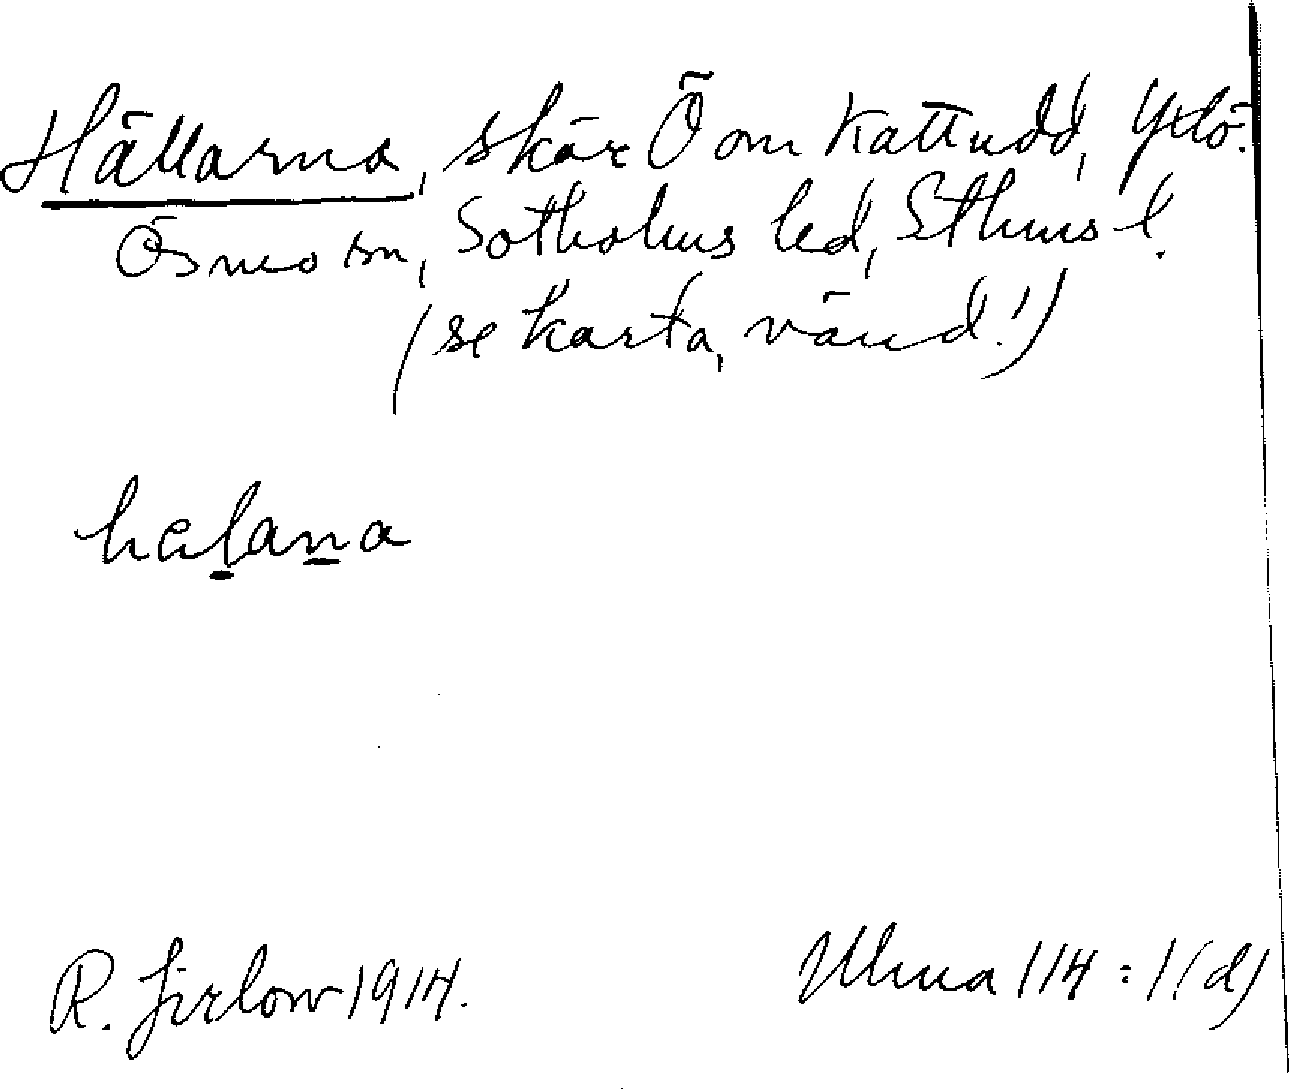 Hällarna, skär Ö om Kattudd, Yxlö.
Ösmo sn, Sotholms hd, Sthms l.
(se karta, vänd!)
hälana
R. Jirlow 1914.
Ulma 114:1(d)